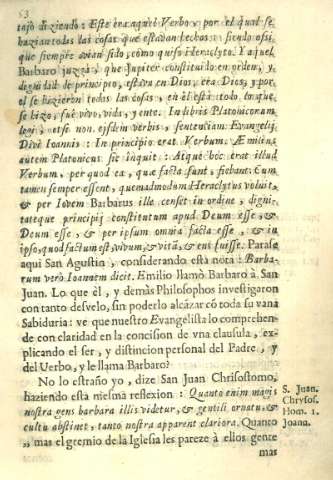 63
tajò diziendo: Este era aquel Verbo, y por el qual se
hazian todas las cosas que estavan hechas: siendo assi,
que siempre avian sido, como quiso Heraclyto. Y aquel
Barbaro juzgà, que Jupiter constituido en orden, y
dignidad de principio, estava en Dios, era Dios, y por
el se hizieron todas las cosas, en èl està todo lo que
se hizo, fuè vivo, vida, y ente. In libris Platonicorum
legi, etse non ijsdem verbis, sententiam Evangelij
Divi Ioannis: In principio erat Verbum. Æmilius
autem Platonicus sic inquit: Atque hoc erat illud
Verbum, per quod ea, quæ facta sunt, fiebant: Cum
tamen semper essent, quemadmodum Heraclytus voluit,
& per Iovem Barbarus ille censit in ordine, digni-
tateque principij constitutum apud Deum esse, &
Deum esse, & per ipsum omnia facta esse, & in
ipso, quod factum est, vivum, & vitã, & ens fuisse. Parase
aqui San Agustin, considerando està nota: Barba-
rum verò Ioannem dicit. Emilio llamò Barbaro à San
Juan. Lo que èl, y demàs Philosophos investigaron
con tanto desvelo, sin poderlo alcãzar cõ toda su vana
Sabiduria: ve que nuestro Evangelista lo comprehen-
de con claridad en la concision de vna clausula, ex-
plicando el ser, y distincion personal del Padre, y
del Verbo, y le llama Barbaro?
No lo estraño yo, dize San Juan Chrisostomo,
haziendo esta misma reflexion: Quanto enim magis
nostra gens barbara illis videtur, & gentili ornatu, &
cultu abstinet, tanto nostra apparent clariora. Quanto
mas el gremio de la Iglesia les pareze à ellos gente
mas
S. Juan.
Chrysos.
Hom. 1.
Joana.